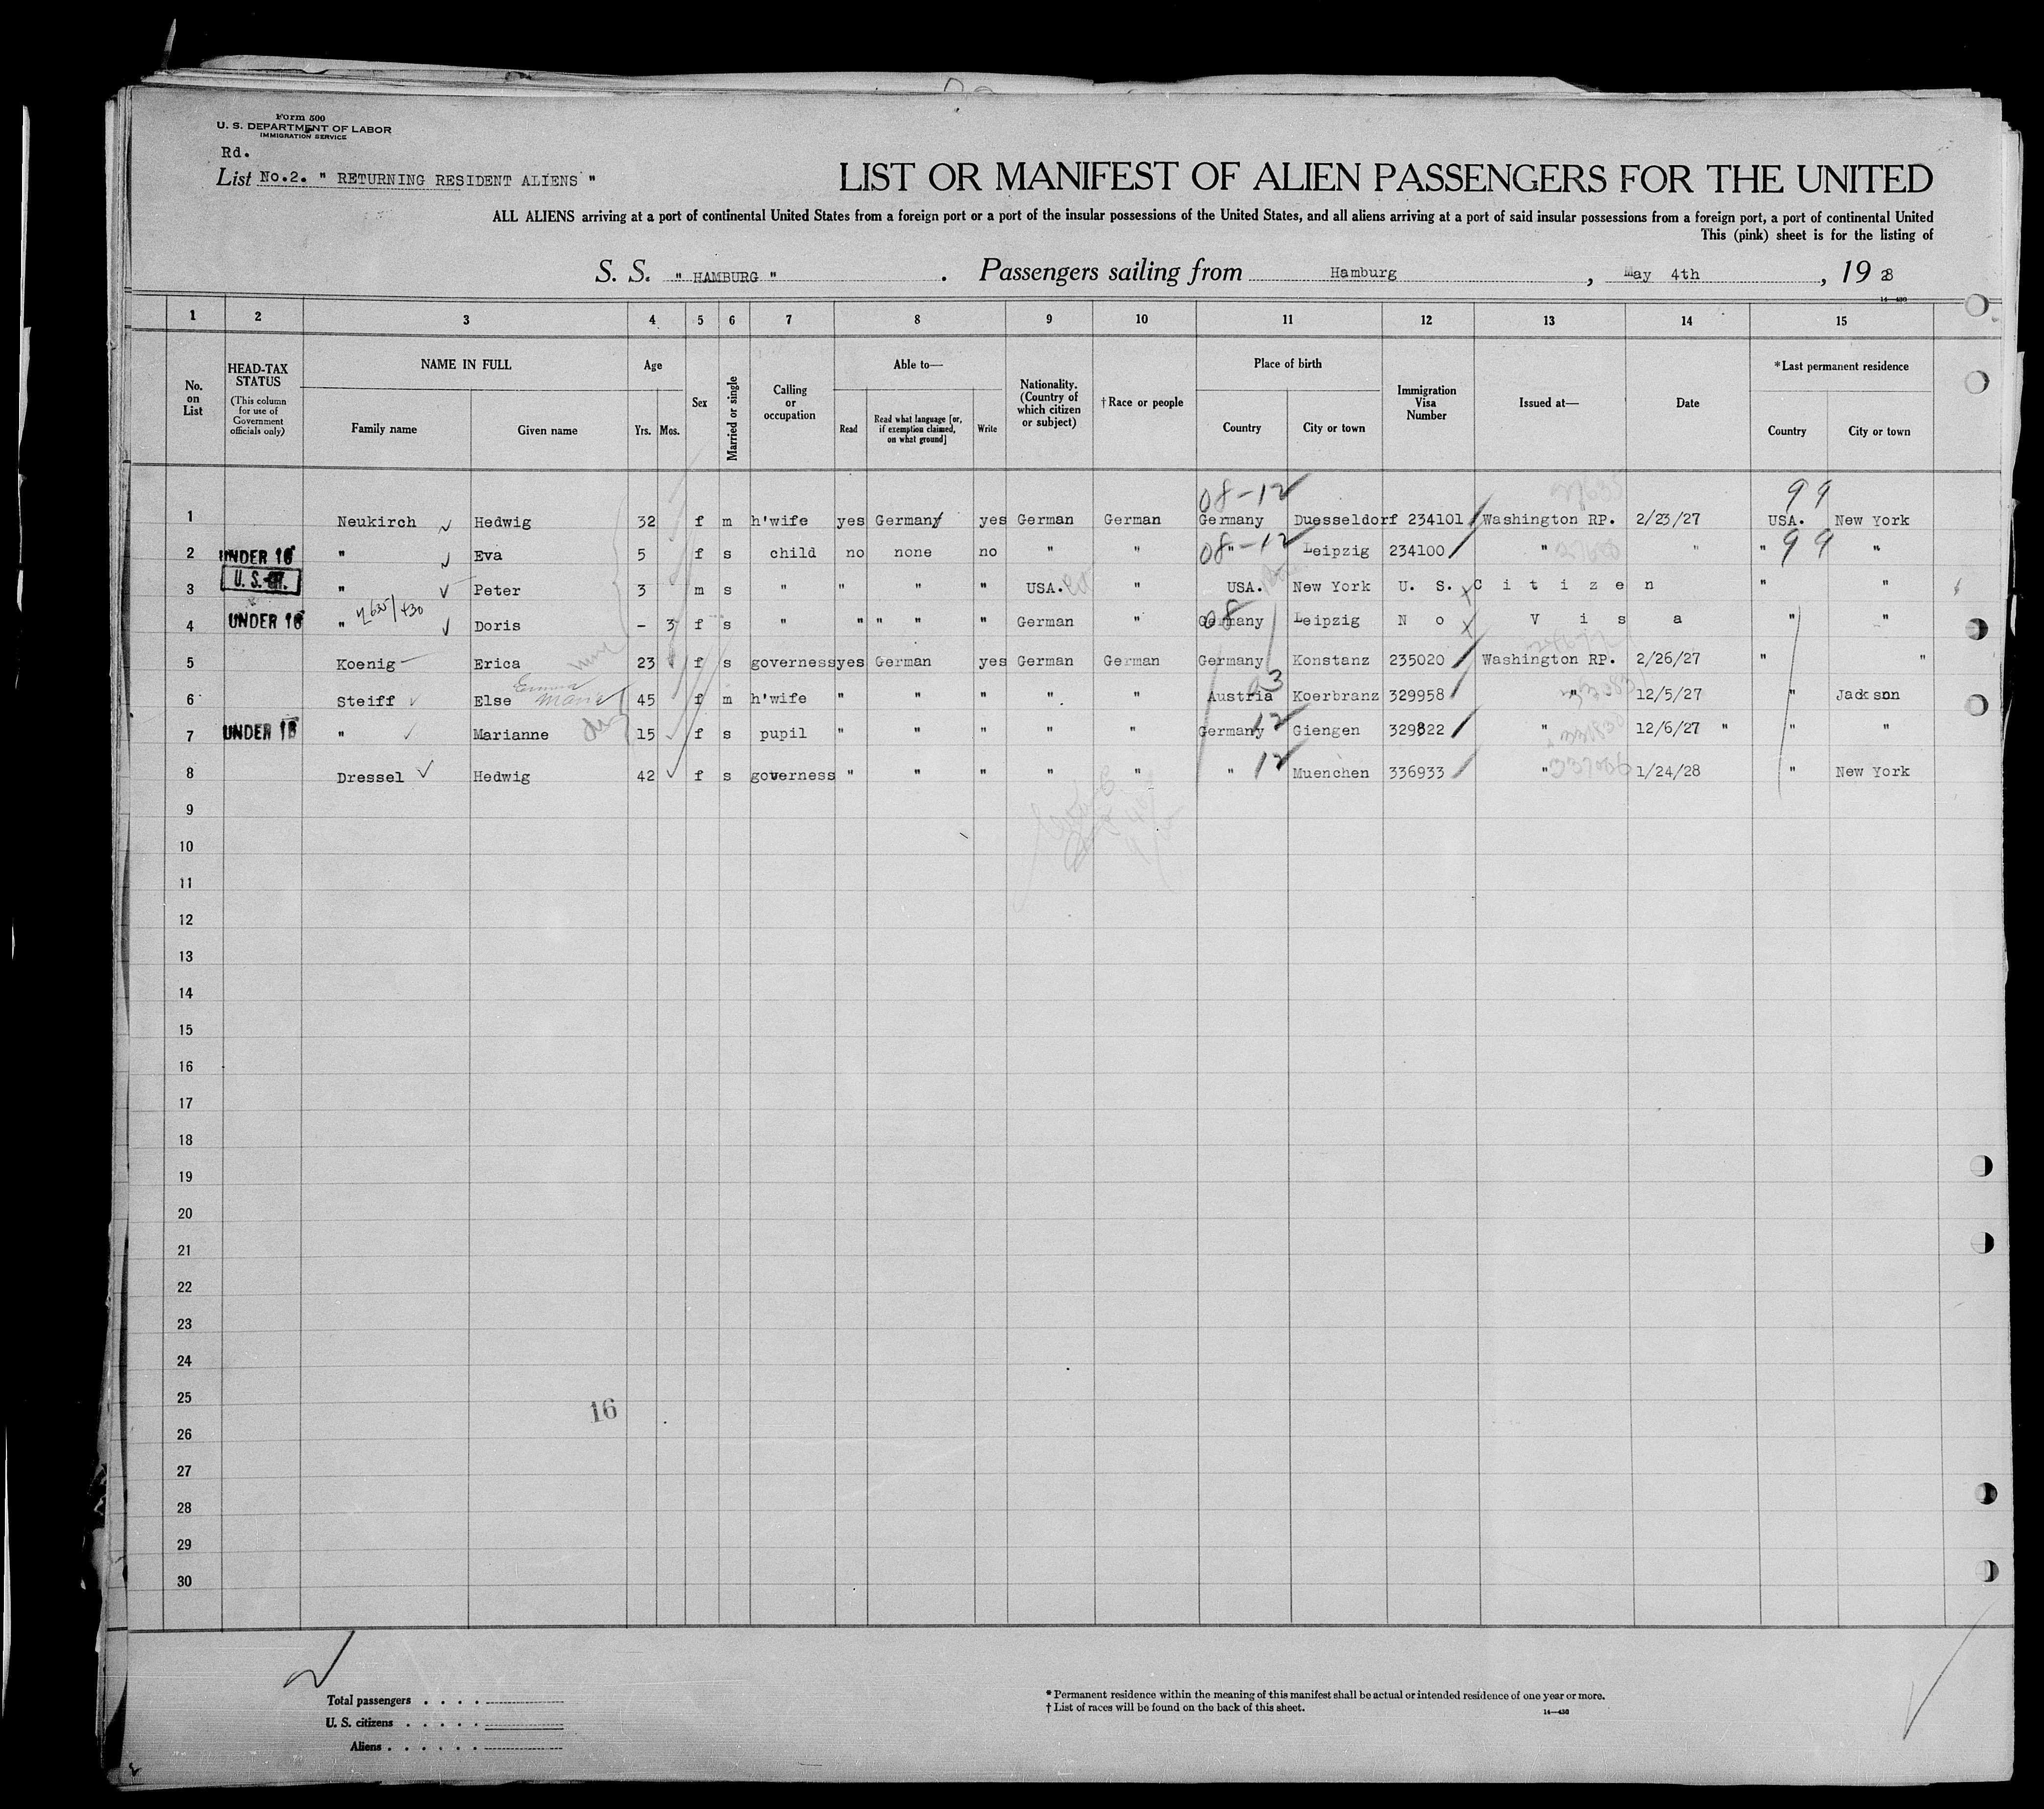 Form 500
U. S. DEPARTMENT OF LABOR
IMMIGRATION SERVICE
Rd.
List No.2. " RETURNING RESIDENT ALIENS "
LIST OR MANIFEST OF ALIEN PASSENGERS FOR THE UNITED
ALL ALIENS arriving at a port of continental United States from a foreign port or a port of the insular possessions of the United States, and all aliens arriving at a port of said insular possessions from a foreign port, a port of continental United
This (pink) sheet is for the listing of
S. S. " HAMBURG ". Passengers sailing from Hamburg, May 4th, 1928
14—430
1 2 3 4 5 6 7 8 9 10 11 12 13 14 15
No. on List
HEAD-TAX STATUS (This column for use of Government officials only)
NAME IN FULL
Family name Given name
Age
Yrs. Mos.
Sex
Married or single
Calling or occupation
Able to—
Read Read what language [or, if exemption claimed, on what ground] Write
Nationality. (Country of which citizen or subject)
† Race or people
Place of birth
Country City or town
Immigration Visa Number
Issued at—
Date
* Last permanent residence
Country City or town
08-12 99
1 Neukirch Hedwig 32 f m h'wife yes Germany yes German German Germany Duesseldorf 234101 Washington RP. 2/23/27 USA. New York
2 UNDER 16 " Eva 5 f s child no none no " " 08-12 " Leipzig 234100 " " " 99 "
3 U. S. " Peter 3 m s " " " " USA. " USA. New York U. S. Citizen " "
4 UNDER 16 " Doris - 3 f s " " " " " German " 08 Germany Leipzig No Visa " "
5 Koenig Erica 23 f s governess yes German yes German German Germany Konstanz 235020 Washington RP. 2/26/27 " "
6 Steiff Else 45 f m h'wife " " " " " Austria Koerbranz 329958 " 12/5/27 " Jackson
7 UNDER 16 " Marianne 15 f s pupil " " " " " Germany 12 Giengen 329822 " 12/6/27 " " "
8 Dressel Hedwig 42 f s governess " " " " " " 12 Muenchen 336933 " 1/24/28 " New York
9
10
11
12
13
14
15
16
17
18
19
20
21
22
23
24
25
16
26
27
28
29
30
Total passengers . . . .
U. S. citizens . . . . .
Aliens . . . . . .
* Permanent residence within the meaning of this manifest shall be actual or intended residence of one year or more.
† List of races will be found on the back of this sheet.
14—430